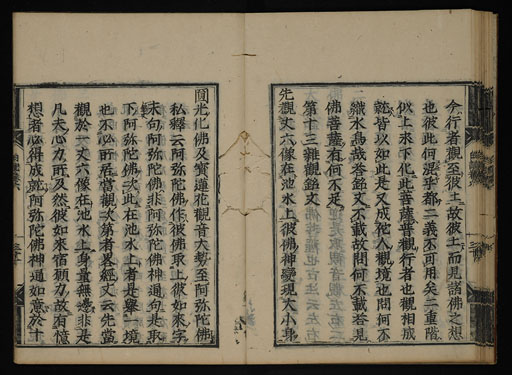 今行者觀至彼土故彼土而見諸佛之想
也彼此何混乎都二義不可用矣二重階
似上來下化此菩薩普觀行者也觀相成
就皆以如此是又成佗人觀境也問何不
識水鳥哉答銘文不載故問何不載答見
佛菩薩有何不足
第十三雜觀銘文
先觀丈六像在池水上彼佛神變現大小身
圓光化佛及寶蓮花觀音大勢至阿弥陀佛
私釋云阿弥陀佛作彼佛取上彼如來字
末句阿弥陀佛非阿弥陀佛神通句是取
下阿弥陀佛次此在池水上者是舉一境
也不必所居當觀次第者畧經文云先當
觀於一丈六像在池水上身量無邊非是
凡夫心力所及然彼如來宿願力故有憶
想者必得成就阿弥陀佛神通如意於十